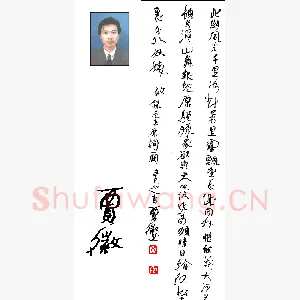 北国风光千里冰封万里雪飘望长城内外惟余莽莽大河上
顿失滔滔山舞银蛇原驰蜡象欲与天公试比高须晴日看红装
裹分外妖娆
贾徽
Shufawang.CN